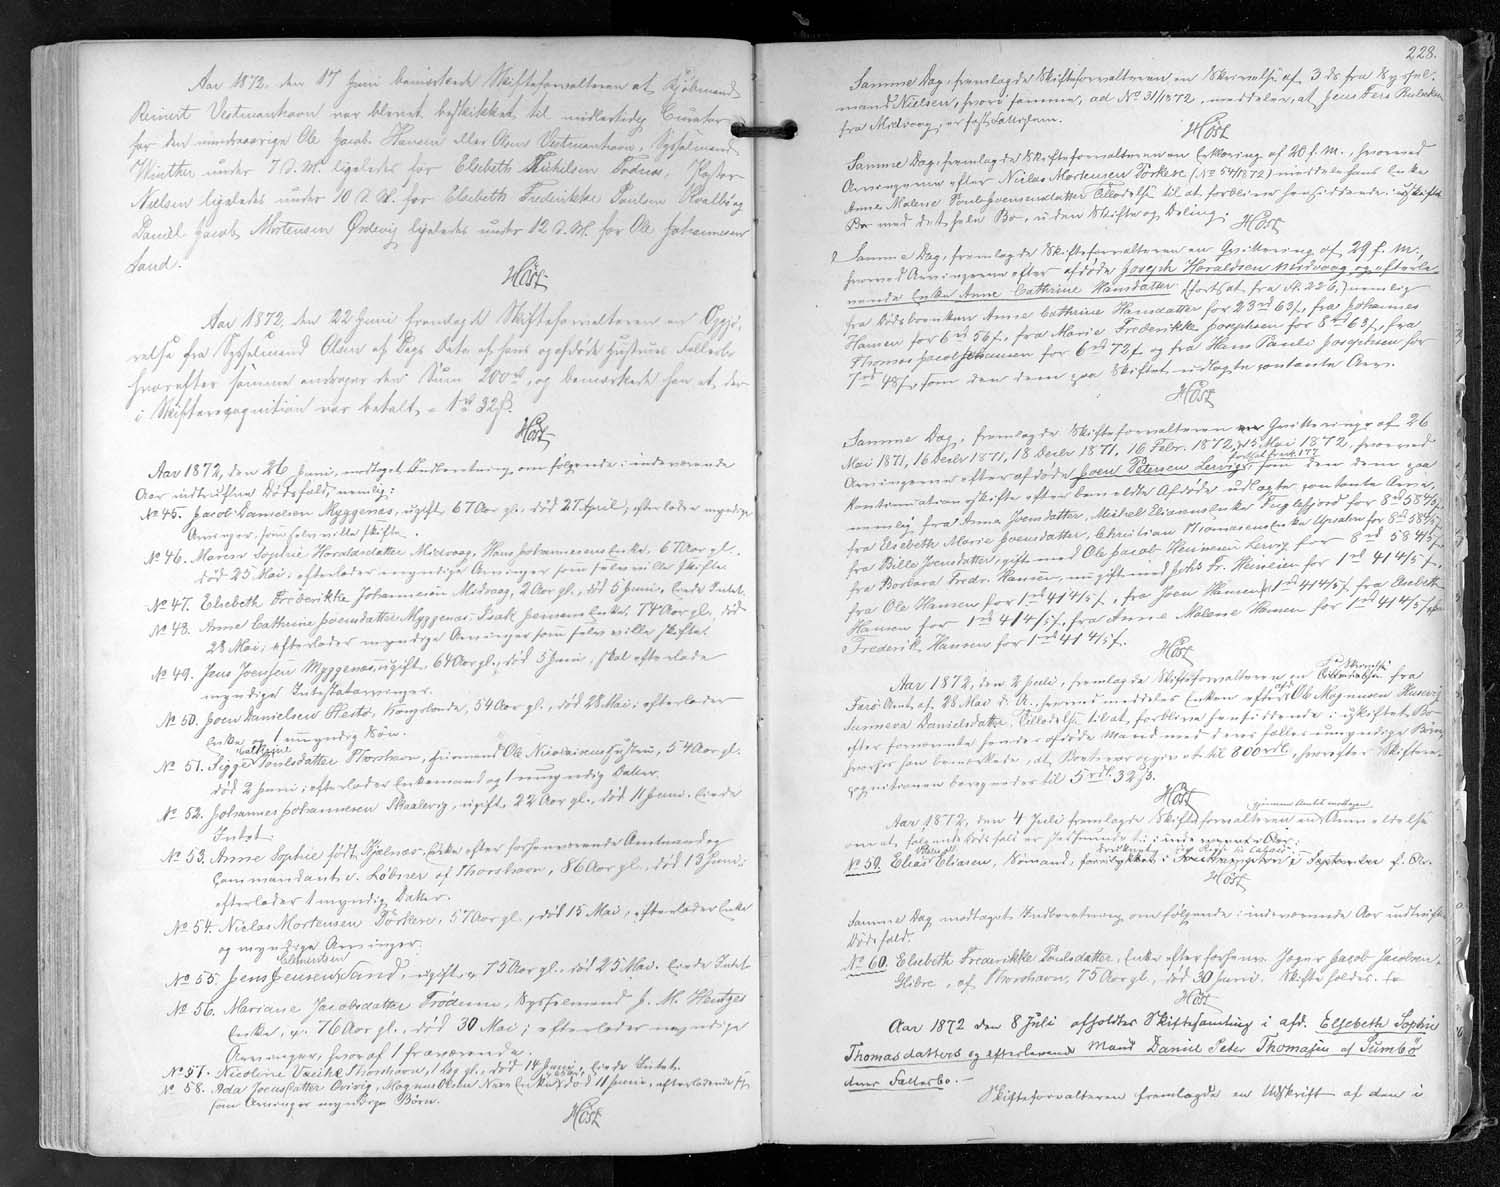 Aar 1872, den 17 Juni bemærkede Skifteforvalteren at Kjøbmand
Reinert Vestmanhavn var blevet beskikket til midlertidig Curator
for den mindreaarige Ole Jacob Hansen eller Olsen Vestmanhavn, Sysselmand
Winther under 7 d. M. ligeledes for Elsebeth Michelsen Fodnæs, Pastor
Nielsen ligeledes under 10 d. M. for Elsebeth Frederikke Poulsen Kvalbøeg
Daniel Jacob Mortensen Ørdevig ligeledes under 12 d. M. for Ole Johannesen
Sand.
Høst
Aar 1872, den 22 Juni fremlagde Skifteforvalteren en Opgjø-
relse fra Sysselmand Olsen af Dags Dato af hans og afdøde Hustrues Fællesbo
hvorefter samme andrager den Sum 200 rd, og bemærkede han at, der
i Skifterecognition var betalt 1 rd 32 ß.
Høst
Aar 1872, den 26 Juni, modtoges Indberetning om følgende i indeværende
Aar indtrufne Dødsfald, nemlig:
No 45. Jacob Danielsen Myggenæs, ugift, 67 Aar gl., død 27 April; efterlader myndige
Arvinger, som selv ville skifte.
No 46. Maren Sophie Haraldsdatter Midvaag, Hans Johannesens Enke, 67 Aar gl.
død 25 Mai; efterlader myndige Arvinger som selv ville skifte.
No 47. Elsebeth Frederikke Johannesen Midvaag, 2 Aar gl., død 5 Juni, Eiede Intet.
No 48. Anne Cathrine Joensdatter Myggenæs, Isak Jensens Enke, 74 Aar gl., død
28 Mai; efterlader myndige Arvinger som selv ville skifte.
No 49. Jens Joensen Myggenæs, ugift, 64 Aar gl., død 5 Juni, skal efterlade
myndige Intestatarvinger.
No 50. Joen Danielsen Hestø, Kongsbonde, 54 Aar gl., død 28 Mai; efterlader
Enke og 1 umyndig Søn.
No 51. Sigge Cathrine Poulsdatter Thorshavn, Ole Nicolaisens Hustru, 54 Aar gl.
død 2 Juni; efterlader Enkemand og 1 umyndig Datter.
No 52. Johannes Johannesen Skaalevig, ugift, 22 Aar gl., død 11 Juni. Eiede
Intet.
No 53. Anne Sophie født Kjælnæs, Enke efter forhenværende Amtmand og
Commandant v. Løbner af Thorshavn, 86 Aar gl., død 13 Juni;
efterlader 1 myndig Datter.
No 54. Niclas Mortensen Törkere, 57 Aar gl., død 15 Mai, efterlader Enke
og myndige Arvinger.
No 55. Jens Jensen Clementsen Sand, ugift, 75 Aar gl., død 25 Mai. Eiede Intet
No 56. Mariane Jacobsdatter Frødume, Sysselmand J. M. Hentzes
Enke, 76 Aar gl., død 30 Mai; efterlader myndige
Arvinger, hvoraf 1 fraværende.
No 57. Nicoline Thorshavn, 1 Dag gl., død 14 Juni, Eiede Intet.
No 58. Ada Joensdatter Qvivig, Magnus Olsen Næs Enke død 11 Juni, efterladende sig
som Arvinger myndige Børn.
Høst
228.
Samme Dag, fremlagde Skifteforvalteren en Skrivelse af 3 ds fra Syssel-
mand Nielsen, hvori samme, ad No 31/1872, meddeler, at Jens
fra Midvaag, er født
Høst
Samme Dag, fremlagde Skifteforvalteren en Erklæring af 20 f. M., hvorved
Arvingerne efter Niclas Mortensen Törkere (No 54/1872) meddele hans Enke
Anne Malene Poulsdatter Tilladelse til at forblive hensiddende i uskiftet
Bo med det fulde Bo, uden Skifte og Deling.
Høst
Samme Dag, fremlagde Skifteforvalteren en Qvittering af 29 f. M.,
hvorved Arvingerne efter afdøde Joseph Haraldsen Midvaag og efterle-
vende Enke Anne Cathrine Hansdatter (fortsat fra Pk. 226) nemlig
fra Dødsboenken Anne Cathrine Hansdatter for 23 rd 63 ß, fra Johannes
Hansen for 6 rd 56 ß, fra Marie Frederikke Josephsen for 8 rd 63 ß, fra
Thomas Jacob Johansen for 6 rd 72 ß og fra Hans Pauli Josephsen for
7 rd 48 ß, som den dem paa Skiftet udlagte contante Arv.
Høst
Samme Dag, fremlagde Skifteforvalteren Qvitteringer af 26
Mai 1871, 16 Decbr 1871, 18 Decbr 1871, 16 Febr. 1872, 15 Mai 1872, hvorved
Arvingerne efter afdøde Joen Petersen Lervig, fortsat fra 177 som den dem paa
Kontinuationsskifte efter bemeldte Afdøde udlagte contante Arv,
nemlig fra Anna Joensdatter, Michel Eliasens Enke Fuglefjord for 8 rd 58 4/5 ß,
fra Elsebeth Marie Joensdatter, Christian Thomasens Enke for 8 rd 58 4/5 ß,
fra Bille Joensdatter, gift med Ole Jacob Heinesen Lervig for 8 rd 58 4/5 ß,
fra Barbara Fredr. Hansen, nu gift med Fr. Heinesen for 1 rd 41 4/5 ß,
fra Ole Hansen for 1 rd 41 4/5 ß, fra Joen Hansen 1 rd 41 4/5 ß fra Elsebeth
Hansen for 1 rd 41 4/5 ß, fra Anne Malene Hansen for 1 rd 41 4/5 ß
Frederik Hansen for 1 rd 41 4/5 ß.
Høst
Aar 1872, den 2 Juli, fremlagde Skifteforvalteren en Skrivelse fra
Færø Amt af 28 Mai d. A., hvorved meddeles Enken efter Ole Magnusen Husevig
Sunneva Danielsdatter, Tilladelse til at forblive hensiddende i uskiftet Bo
efter fornævnte hendes afdøde Mand med deres fælles umyndige Børn
hvorhos han bemærkede, at Boet var opgivet til 800 rdl., hvorefter Skiftere-
cognitionen beregnedes til 5 rdl. 32 ß.
Høst
Aar 1872, den 4 Juli fremlagde Skifteforvalteren en gjennem Amtet modtagen Anmeldelse
om at, følgende Dødsfald er
No 59. Elias Eliasen, Sømand, forulykket i September f. Ar.
Høst
Samme Dag modtoges Indberetning om følgende i indeværende Aar indtrufne
Dødsfald.
No 60. Elsebeth Frederikke Poulsdatter, Enke efter forhenv. Jæger Jacob Jacobsen
Glibre, af Thorshavn, 75 Aar gl., død 30 Juni. Skifte holdes.
Høst
Aar 1872 den 8 Juli afholdtes Skiftesamling i afd. Elsebeth Sophie
Thomasdatters og efterlevende Mand Daniel Peter Thomasen af Sumbö
deres Fællesbo. —
Skifteforvalteren fremlagde en Udskrift af den i